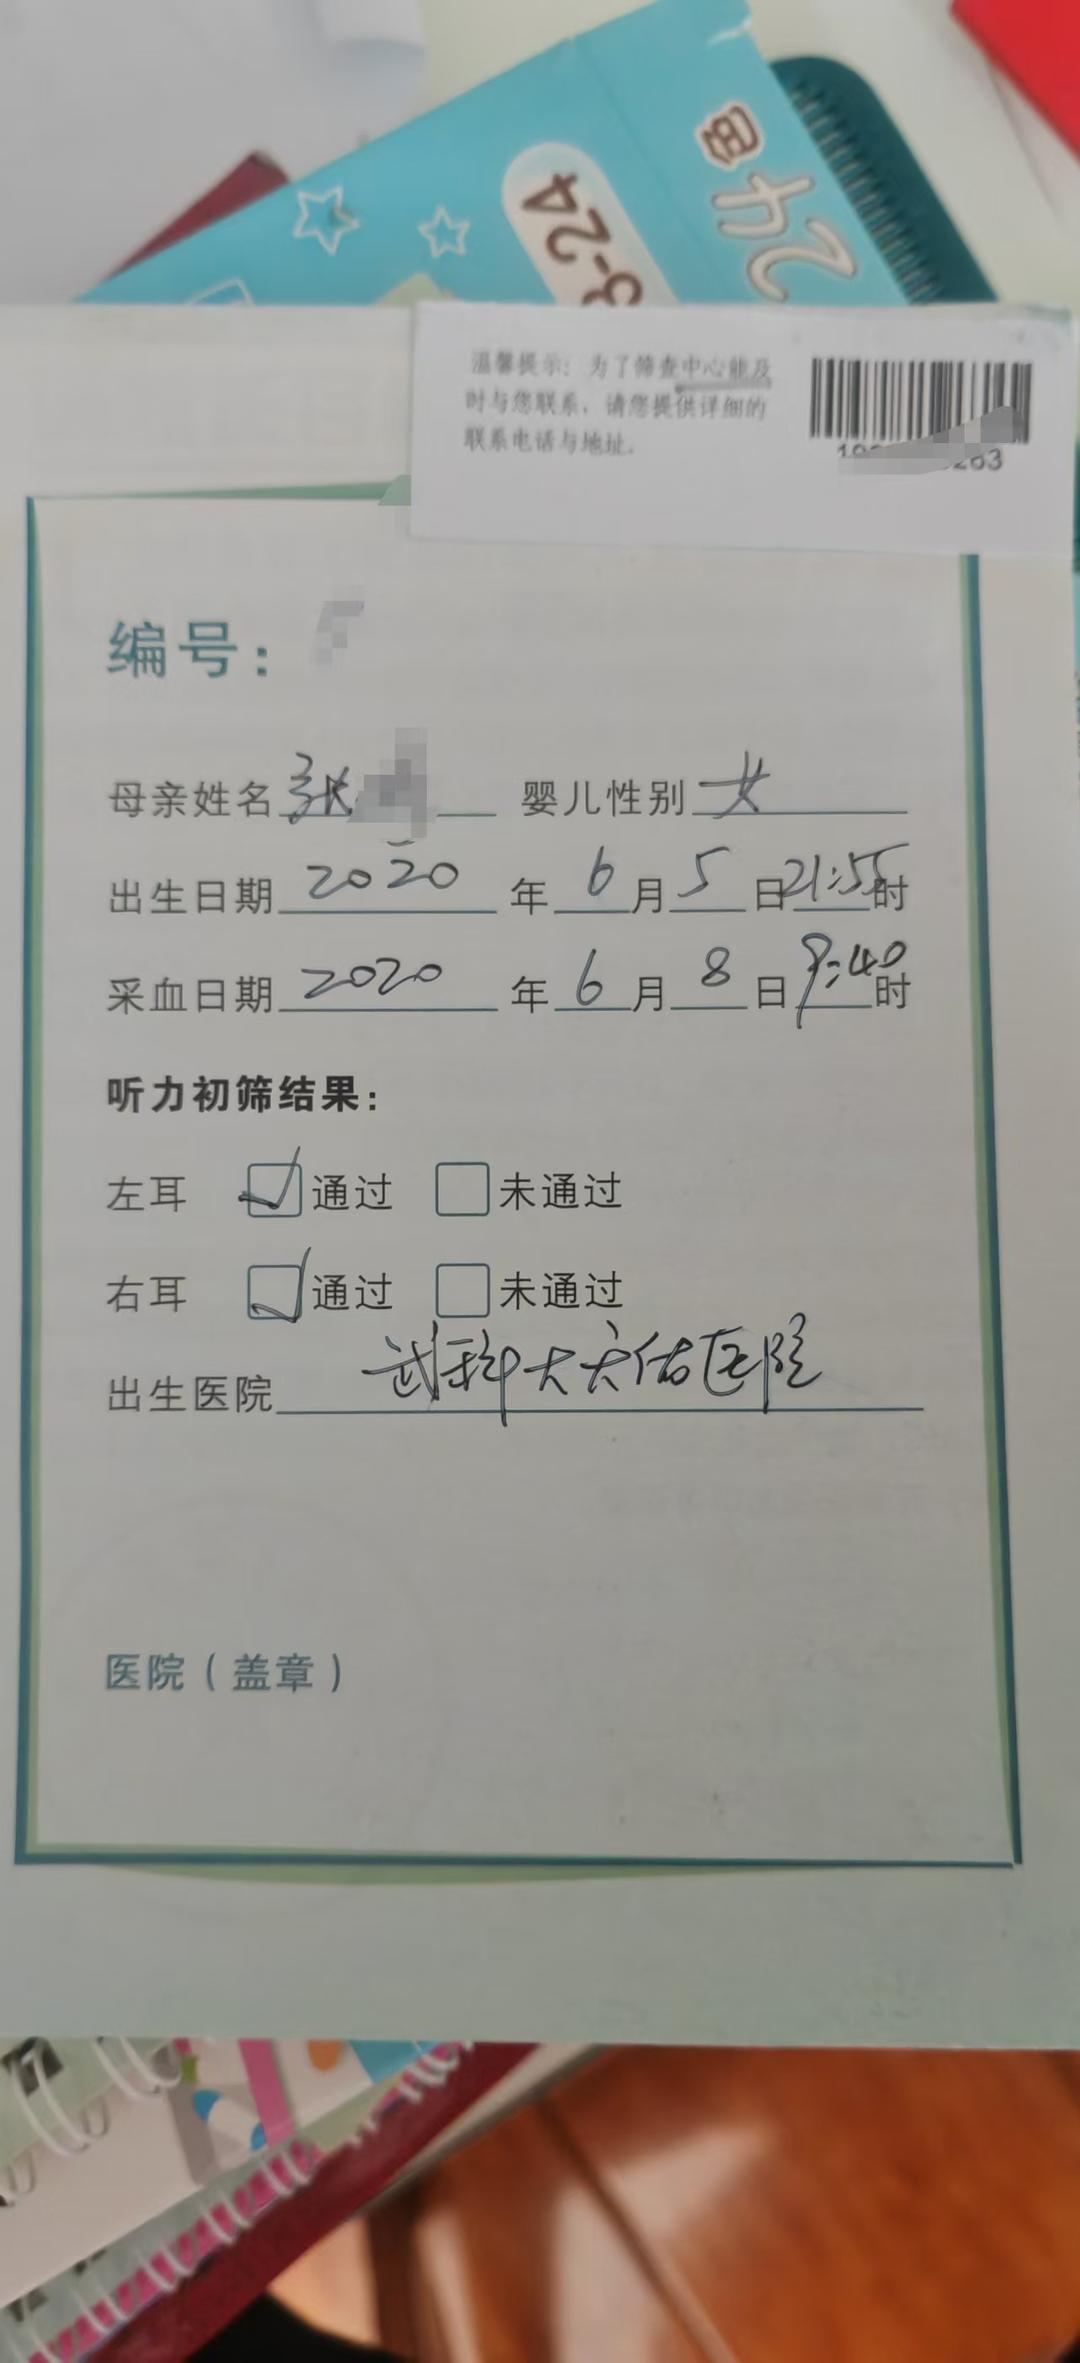 3-24
温馨提示：为了筛查中心能及
时与您联系，请您提供详细的
联系电话与地址.
263
编号：
母亲姓名 张 婴儿性别 女
出生日期 2020 年 6 月 5 日 21:55 时
采血日期 2020 年 6 月 8 日 9:40 时
听力初筛结果：
左耳 通过 未通过
右耳 通过 未通过
出生医院 武科大天佑医院
医院（盖章）